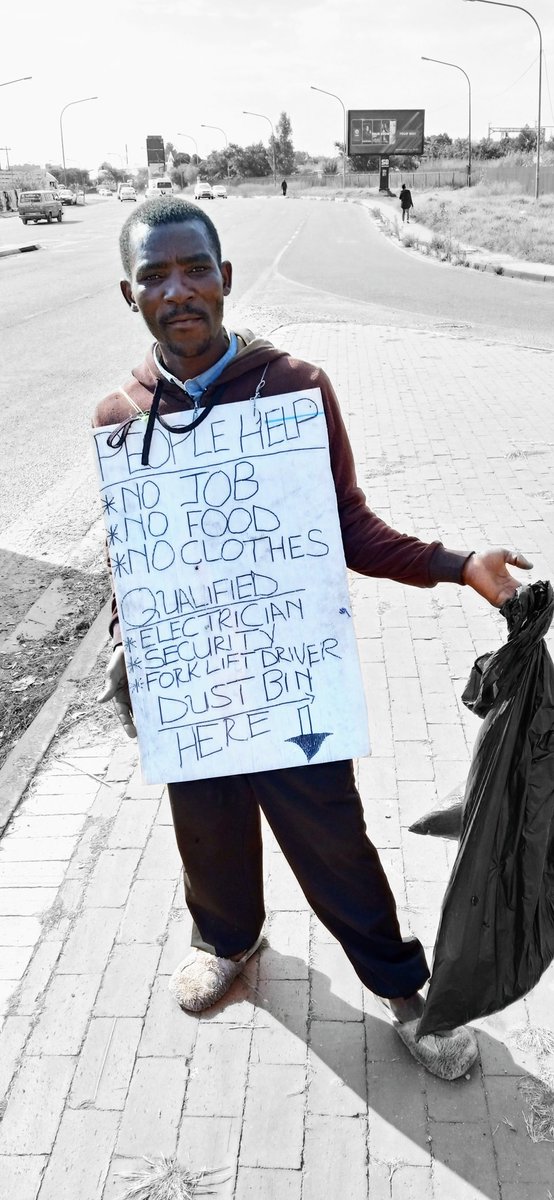 PEOPLE HELP
* NO JOB
* NO FOOD
* NO CLOTHES
QUALIFIED
* ELECTRICIAN
* SECURITY
* FORK LIFT DRIVER
DUST BIN
HERE